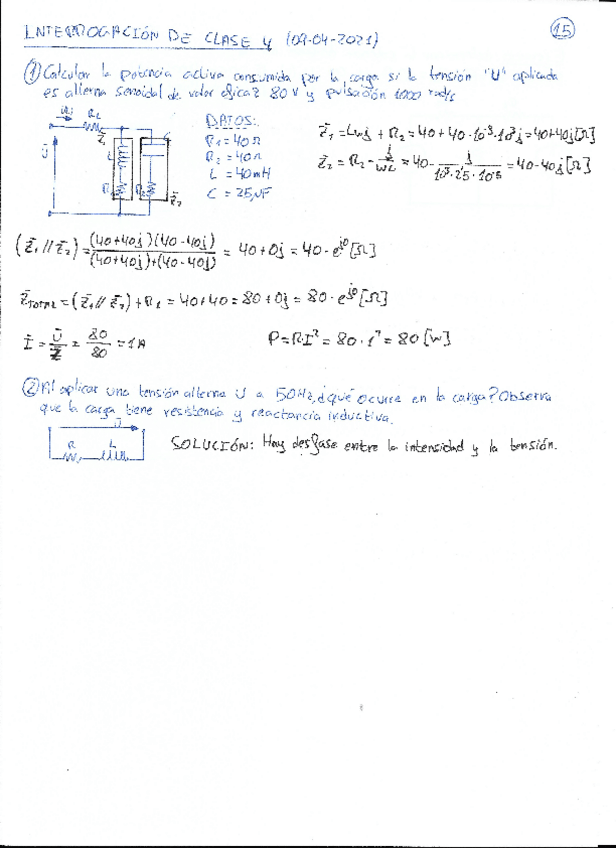 INTERROGACIÓN DE CLASE 4 (09-04-2021)
15
① Calcular la potencia activa consumida por la carga si la tensión "U" aplicada
es alterna senoidal de valor eficaz 80 V y pulsación 1000 rad/s
DATOS:
R1 = 40 Ω
R2 = 40 Ω
L = 40 mH
C = 25 μF
Z̄1 = Lωj + R2 = 40 + 40·10⁻³·10³j = 40+40j [Ω]
Z̄2 = R2 - j/ωC = 40 - j/(10³·25·10⁻⁶) = 40-40j [Ω]
(Z̄1 // Z̄2) = (40+40j)(40-40j)/((40+40j)+(40-40j)) = 40+0j = 40·e^j0 [Ω]
Z̄TOTAL = (Z̄1 // Z̄2) + R1 = 40+40 = 80+0j = 80·e^j0 [Ω]
Ī = Ū/Z̄ = 80/80 = 1 A P = RI² = 80·1² = 80 [W]
② Al aplicar una tensión alterna U a 50Hz, ¿qué ocurre en la carga? Observa
que la carga tiene resistencia y reactancia inductiva.
U
R L
SOLUCIÓN: Hay desfase entre la intensidad y la tensión.